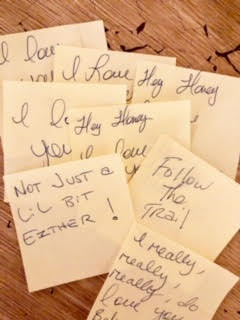 I love
you
I love
Hey Honey
I l
you
Hey Honey
I love
you
Follow
The
Trail
NOT JUST a
LiL BiT
EITHER!
I really,
really,
really, do
love you